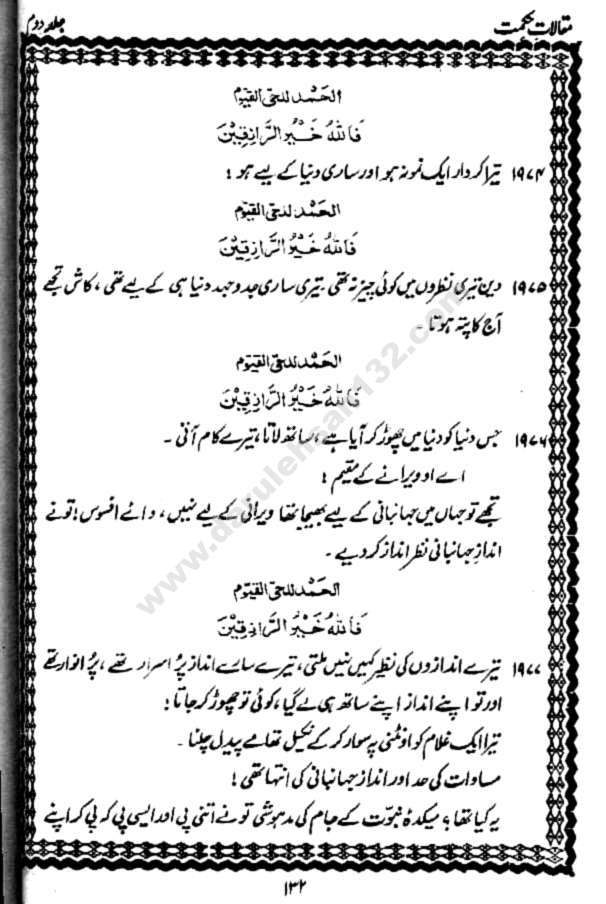 مقالاتِ حکمت
جلد دوم
الحَمْد للحیّ القیّوم
فَاللهُ خَيْرُ الرَّازِقِيْنَ
۱۹۷۴ تیرا کردار ایک نمونہ ہو اور ساری دنیا کے لیے ہو !
الحَمْد للحیّ القیّوم
فَاللهُ خَيْرُ الرَّازِقِيْنَ
۱۹۷۵ دین تیری نظروں میں کوئی چیز نہ تھی۔ تیری ساری جدوجہد دنیا ہی کے لیے تھی ، کاش تجھے
آج کا پتہ ہوتا ۔
الحَمْد للحیّ القیّوم
فَاللهُ خَيْرُ الرَّازِقِيْنَ
۱۹۷۶ جس دنیا کو دنیا میں چھوڑ کر آیا ہے ، ساتھ لاتا ، تیرے کام آتی ۔
اے او ویرانے کے مقیم !
تجھے تو جہاں میں جہانبانی کے لیے بھیجا تھا ویرانی کے لیے نہیں ، وائے افسوس ! تو نے
اندازِ جہانبانی نظر انداز کر دیے ۔
الحَمْد للحیّ القیّوم
فَاللهُ خَيْرُ الرَّازِقِيْنَ
۱۹۷۷ تیرے اندازوں کی نظیر کہیں نہیں ملتی ، تیرے سارے انداز پُر اسرار تھے ، پُر انوار تھے
اور تو اپنے انداز اپنے ساتھ ہی لے گیا ، کوئی تو چھوڑ کر جاتا !
تیرا ایک غلام کو اونٹنی پہ سوار کر کے نکیل تھامے پیدل چلنا ۔
مساوات کی حد اور اندازِ جہانبانی کی انتہا تھی !
یہ کیا تھا ؟ میکدۂ نبوّت کے جام کی مدہوشی تو نے اتنی پی اور ایسی پی کہ پی کر اپنے
۱۳۲
www.darulehsan132.com